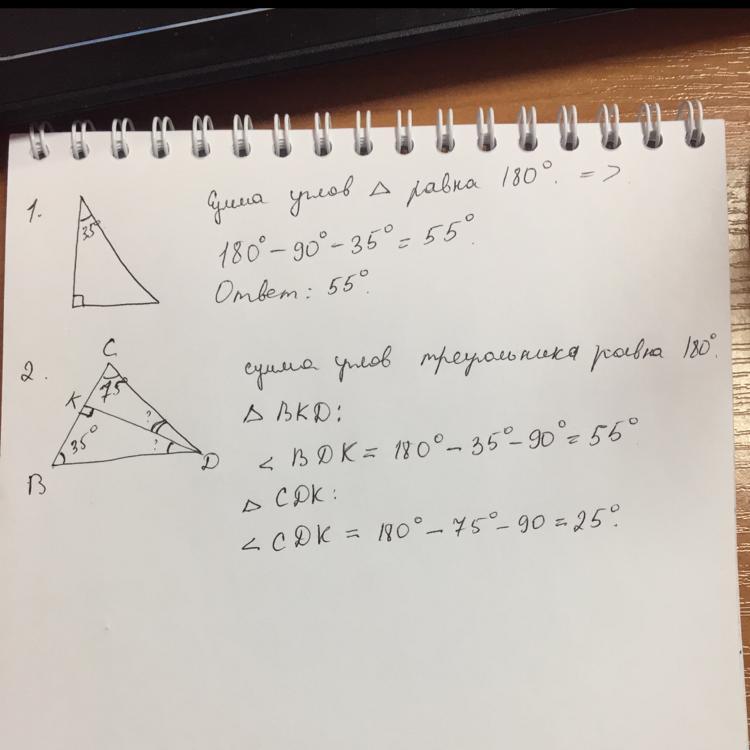 1.
35°
Сумма углов △ равна 180°. =>
180° − 90° − 35° = 55°.
Ответ: 55°.
2.
C
75°
K
35°
?
?
B
D
сумма углов треугольника равна 180°.
△ BKD:
∠ BDK = 180° − 35° − 90° = 55°
△ CDK:
∠ CDK = 180° − 75° − 90 = 25°.